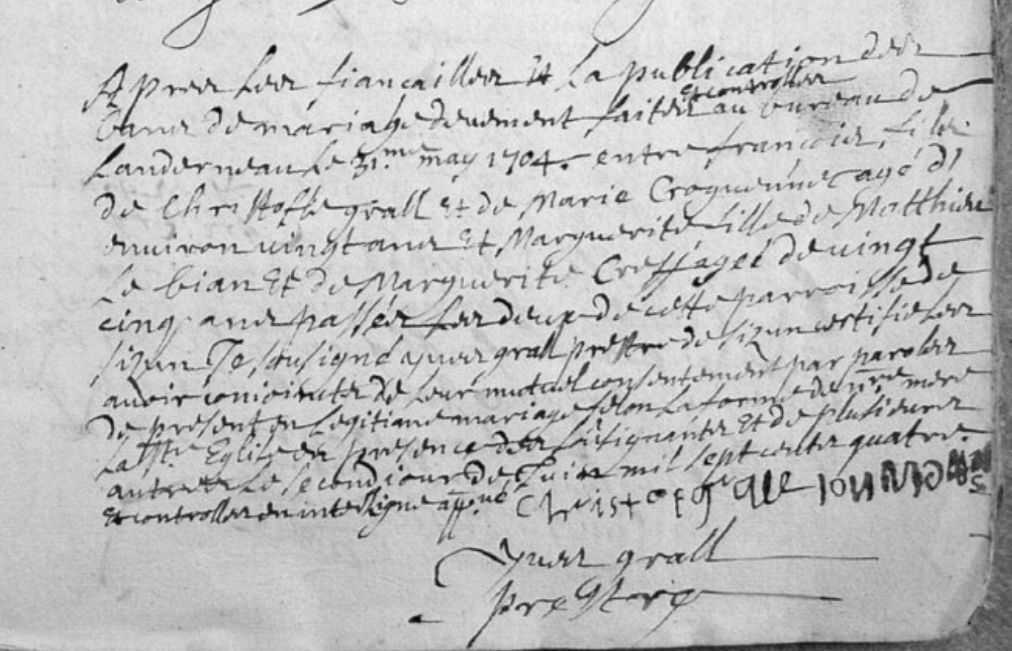 Apres les fiançailles et la publication des
bans de mariage deuement faites et controlles au bureau de
Landerneau le 31.me may 1704. entre francois, fils
de Christoffle grall et de Marie Croguennec agé d'
environ vingt ans et Marguerite fille de Matthieu
Le bian et de Marguerite Cress agée de vingt
cinq ans passés les deux de cette parroisse de
sizun Je sousigné yves grall prestre de sizun certifie les
avoir conioincts de leur mutuel consentement par paroles
de present en legitiame mariage selon la forme de nre mere
la Ste Eglise en presence des sousignants et de plusieurs
autres le second jour de Juin mil sept cents quatre.
et controlles en interligne app.ué
Yves grall
prestre